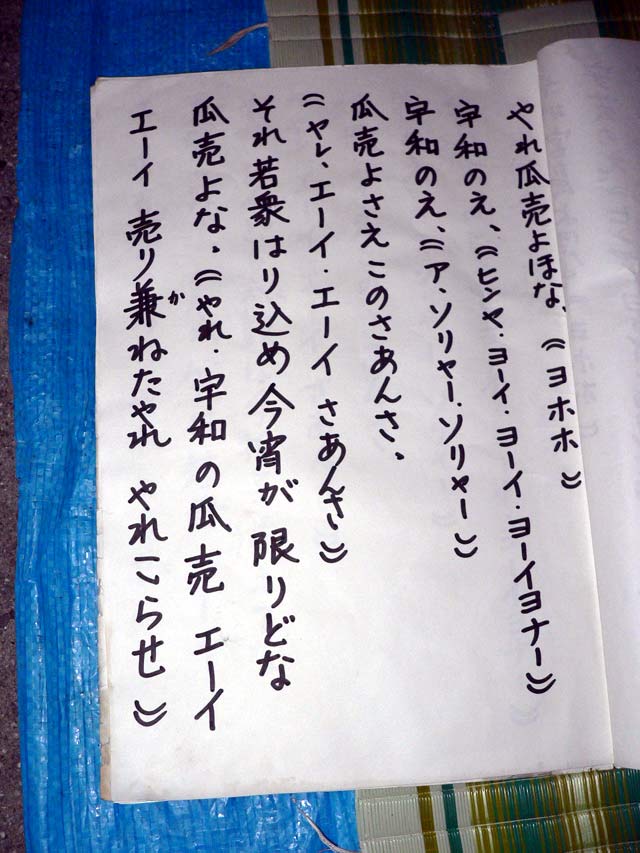 やれ瓜売よほな、（（ヨホホ））
宇和のえ、（（ヒンヤ・ヨーイ・ヨーイ・ヨーイヨナー））
宇和のえ、（（ア・ソリャー・ソリャー））
瓜売よさえこのさあんさ、
（（ヤレ、エーイ・エーイ さあんさー））
それ若衆はり込め今宵が限りどな
瓜売よな。（（やれ・宇和の瓜売 エーイ
エーイ 売り兼かねたやれ やれこらせ））